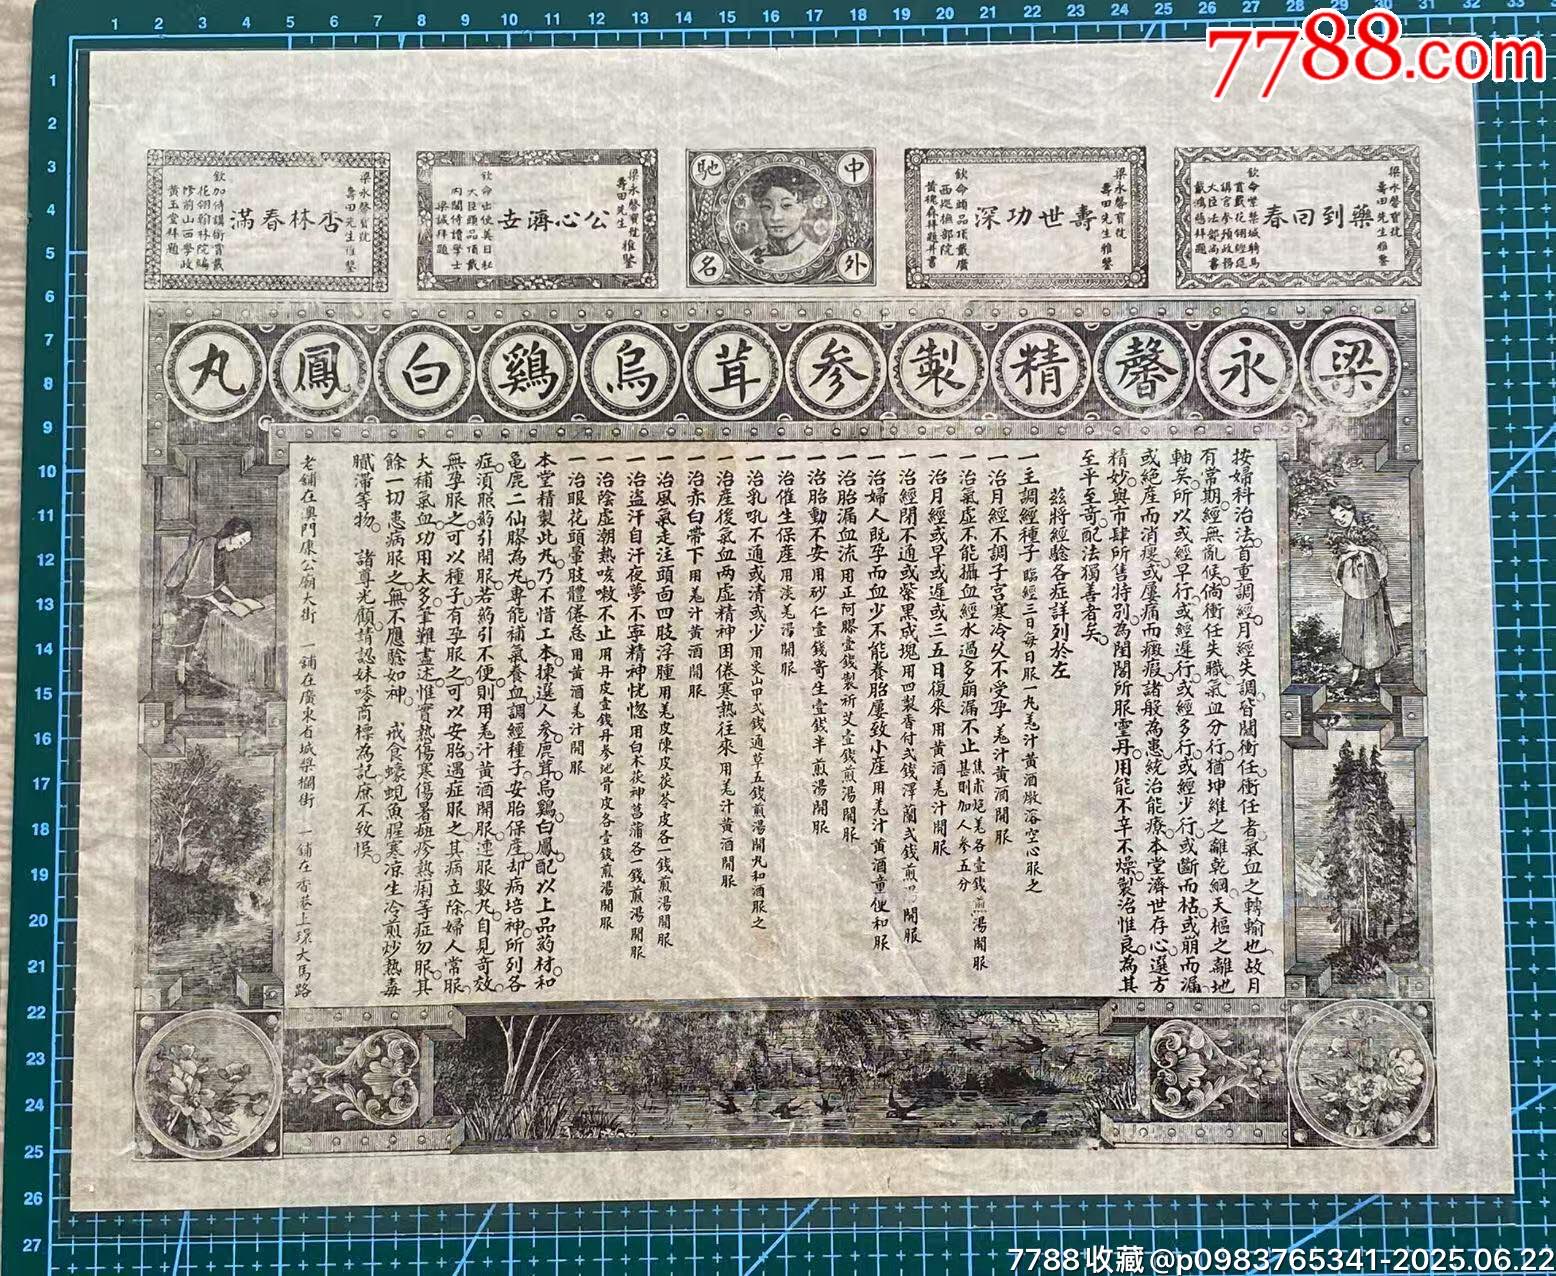 7788.com
梁永馨寶號
壽田先生雅鑒
藥到回春
欽命紫禁城騎馬
賞戴花翎經筵
講官參預政務
大臣法部尚書
戴鴻慈拜題
梁永馨寶號
壽田先生雅鑒
壽世功深
欽命頭品頂戴廣
西巡撫部院
黃槐森拜題并書
中外馳名
梁永馨寶號
壽田先生雅鑒
公心濟世
欽命出使美日秘
大臣頭品頂戴
內閣侍讀學士
梁誠拜題
梁永馨寶號
壽田先生雅鑒
杏林春滿
欽加侍講銜賞戴
花翎翰林院編
修前山西學政
黃玉堂拜題
梁永馨精製參茸烏鷄白鳳丸
按婦科治法首重調經月經失調皆關衝任衝任者氣血之轉輸也故月
有常期經無亂候倘衝任失職氣血分行猶坤維之離乾綱天樞之離地
軸矣所以或經早行或經遲行或經多行或經少行或斷而枯或崩而漏
或絕產而消瘦或屢痛而癥瘕諸般為患統治能療本堂濟世存心選方
精妙與市肆所售特別為閨閣所服靈丹用能不辛不燥製治惟良為其
至平至奇配法獨善者矣
茲將經驗各症詳列於左
一主調經種子臨經三日每日服一丸羗汁黃酒燉溶空心服之
一治月經不調子宮寒冷久不受孕羗汁黃酒開服
一治氣虛不能攝血經水過多崩漏不止焦朮炮羗各壹錢煎湯開服甚則加人參五分
一治月經或早或遲或三五日復來用黃酒羗汁開服
一治經閉不通或紫黑成塊用四製香付弍錢澤蘭弍錢煎湯開服
一治婦人既孕而血少不能養胎屢致小產用羗汁黃酒童便和服
一治胎漏血流用正阿膠壹錢製祈艾壹錢煎湯開服
一治胎動不安用砂仁壹錢寄生壹錢半煎湯開服
一治催生保產用淡羗湯開服
一治乳吼不通或清或少用炙山甲弍錢通草五錢煎湯開丸和酒服之
一治產後氣血兩虛精神困倦寒熱往來用羗汁黃酒開服
一治赤白帶下用羗汁黃酒開服
一治風氣走注頭面四肢浮腫用羗皮陳皮茯苓皮各一錢煎湯開服
一治盜汗自汗夜夢不寧精神恍惚用白朮茯神菖蒲各一錢煎湯開服
一治陰虛潮熱咳嗽不止用丹皮壹錢丹參地骨皮各壹錢煎湯開服
一治眼花頭暈肢體倦怠用黃酒羗汁開服
本堂精製此丸乃不惜工本揀選人參鹿茸烏鷄白鳳配以上品葯材和
龜鹿二仙膠為丸專能補氣養血調經種子安胎保產却病培神所列各
症湏照葯引開服若葯引不便則用羗汁黃酒開服連服數丸自見奇效
無孕服之可以種子有孕服之可以安胎遇症服之其病立除婦人常服
大補氣血功用太多筆難盡述惟實熱傷寒傷暑癍疹熱痢等症勿服其
餘一切患病服之無不應驗如神 戒食蠔蜆魚腥寒凉生冷煎炒熱毒
膩滯等物 諸尊光顧請認妹嘜商標為記庶不致悞
老舖在澳門康公廟大街 一舖在廣東省城槳欄街 一舖在香港上環大馬路
7788收藏@p0983765341-2025.06.22